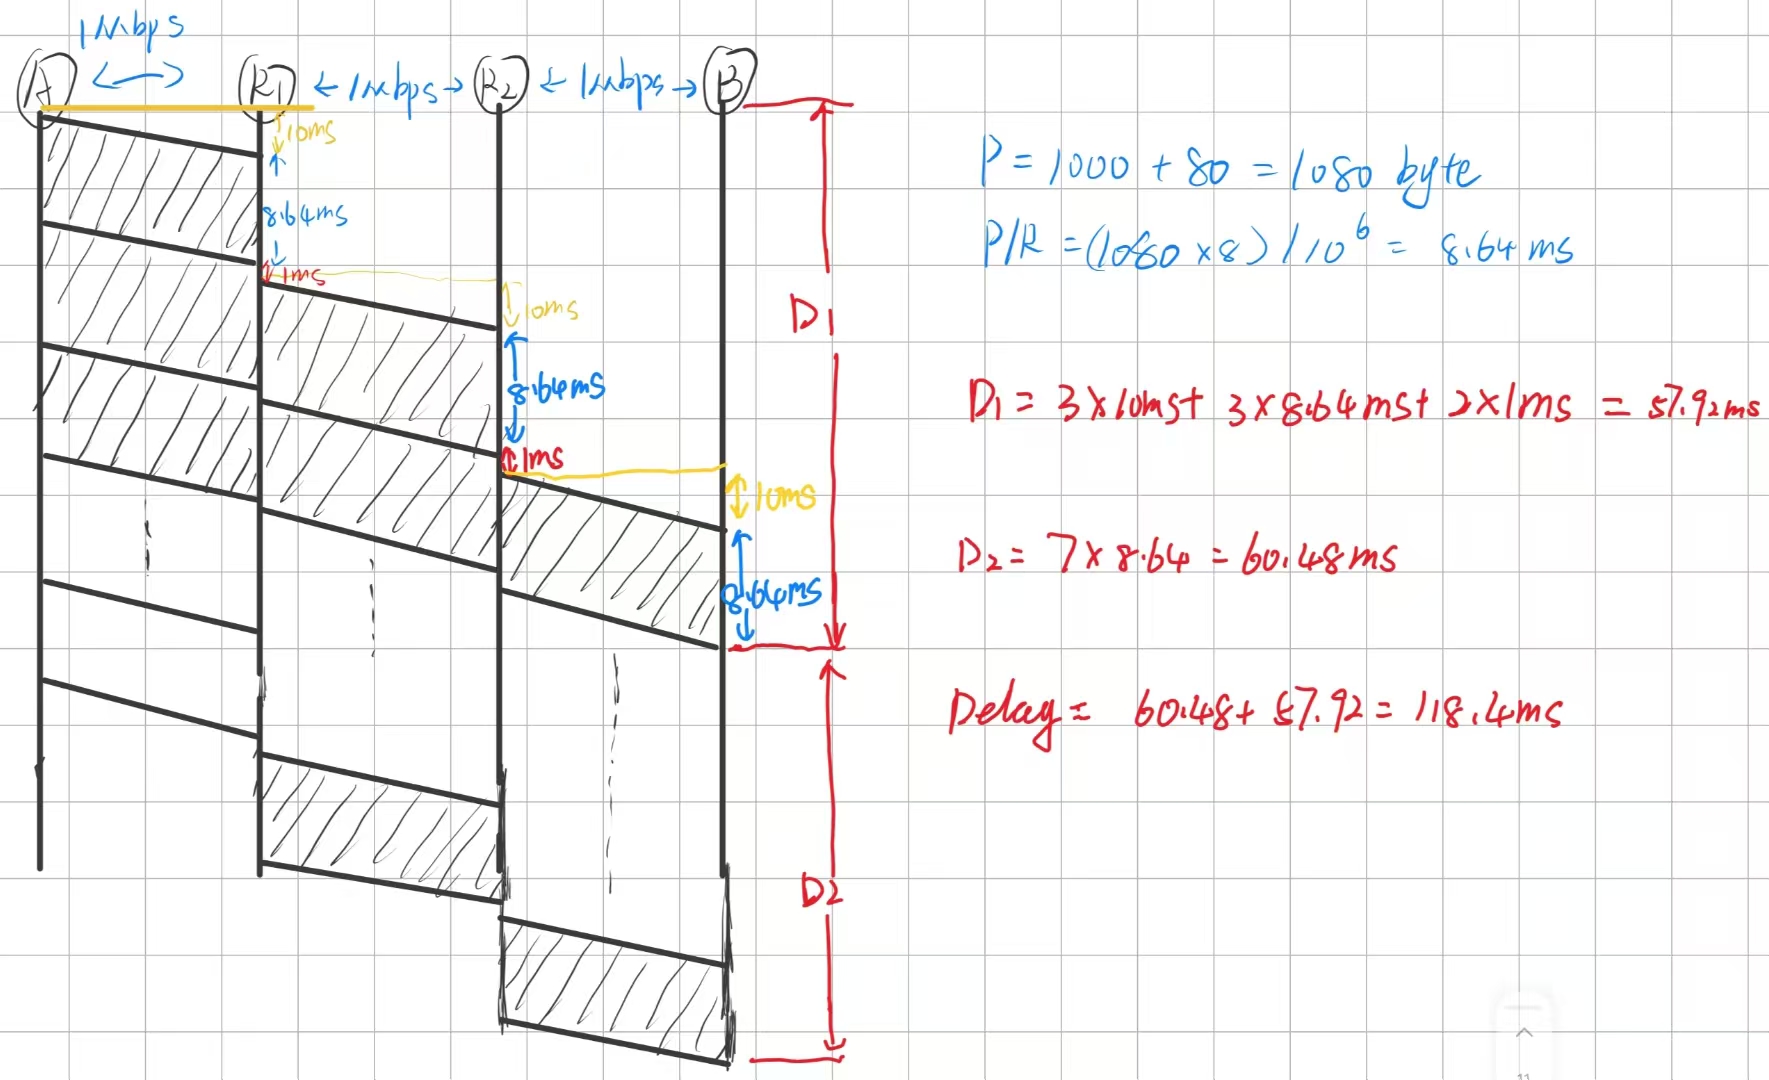 1Mbps
A R1 ← 1Mbps → R2 ← 1Mbps → B
10ms
8.64ms
1ms
10ms
8.64ms
1ms
10ms
8.64ms
D1
D2
P = 1000 + 80 = 1080 byte
P/R = (1080 × 8) / 10⁶ = 8.64 ms
D1 = 3×10ms + 3×8.64ms + 2×1ms = 57.92ms
D2 = 7×8.64 = 60.48ms
Delay = 60.48 + 57.92 = 118.4ms